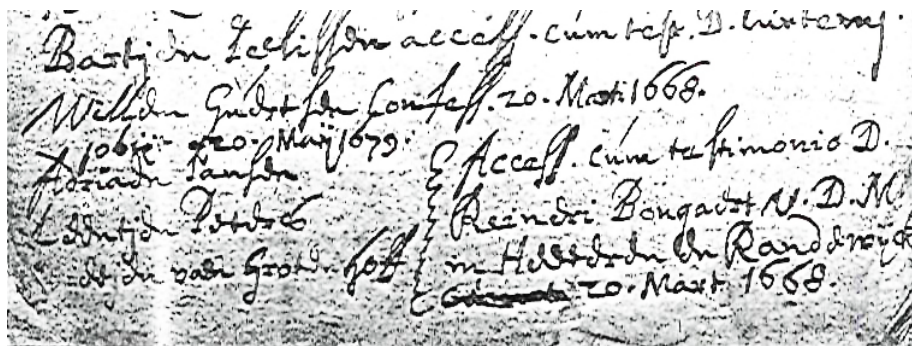 Bastijen Teelissen access. cum test. D.
Willem Gúertsen Confess. 20. Mart. 1668.
obijt 20. Maij 1679.
Adriaen Jansen
Leentjen Peters
van Groten hoff
Access. cúm testimonio D.
Reineri Bongaert V. D. M
in Heteren en Randwijck
20. Mart. 1668.